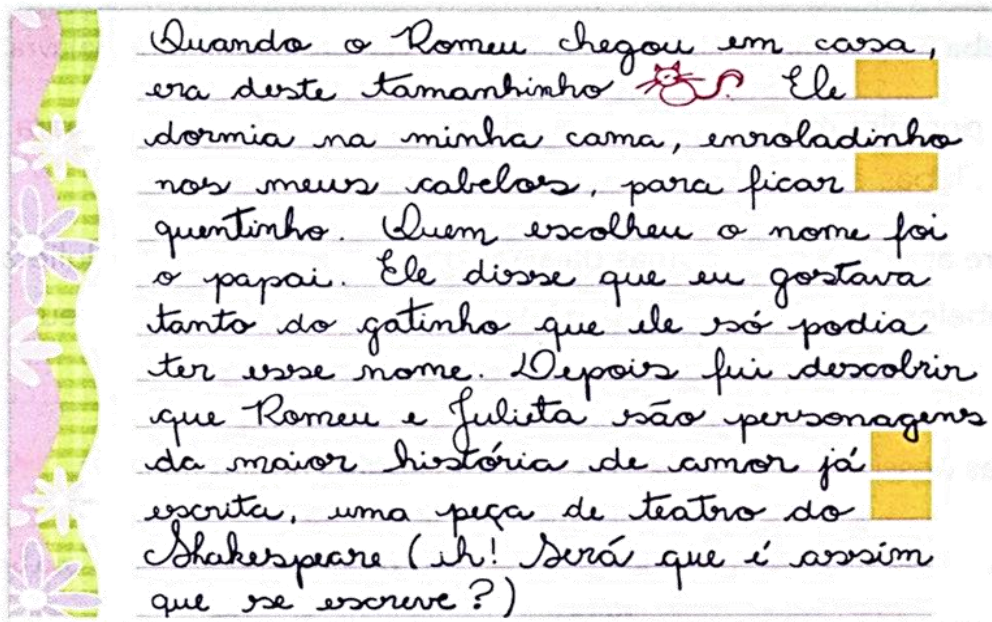 Quando o Romeu chegou em casa,
era deste tamanhinho. Ele
dormia na minha cama, enroladinho
nos meus cabelos, para ficar
quentinho. Quem escolheu o nome foi
o papai. Ele disse que eu gostava
tanto do gatinho que ele só podia
ter esse nome. Depois fui descobrir
que Romeu e Julieta são personagens
da maior história de amor já
escrita, uma peça de teatro do
Shakespeare (ih! Será que é assim
que se escreve?)